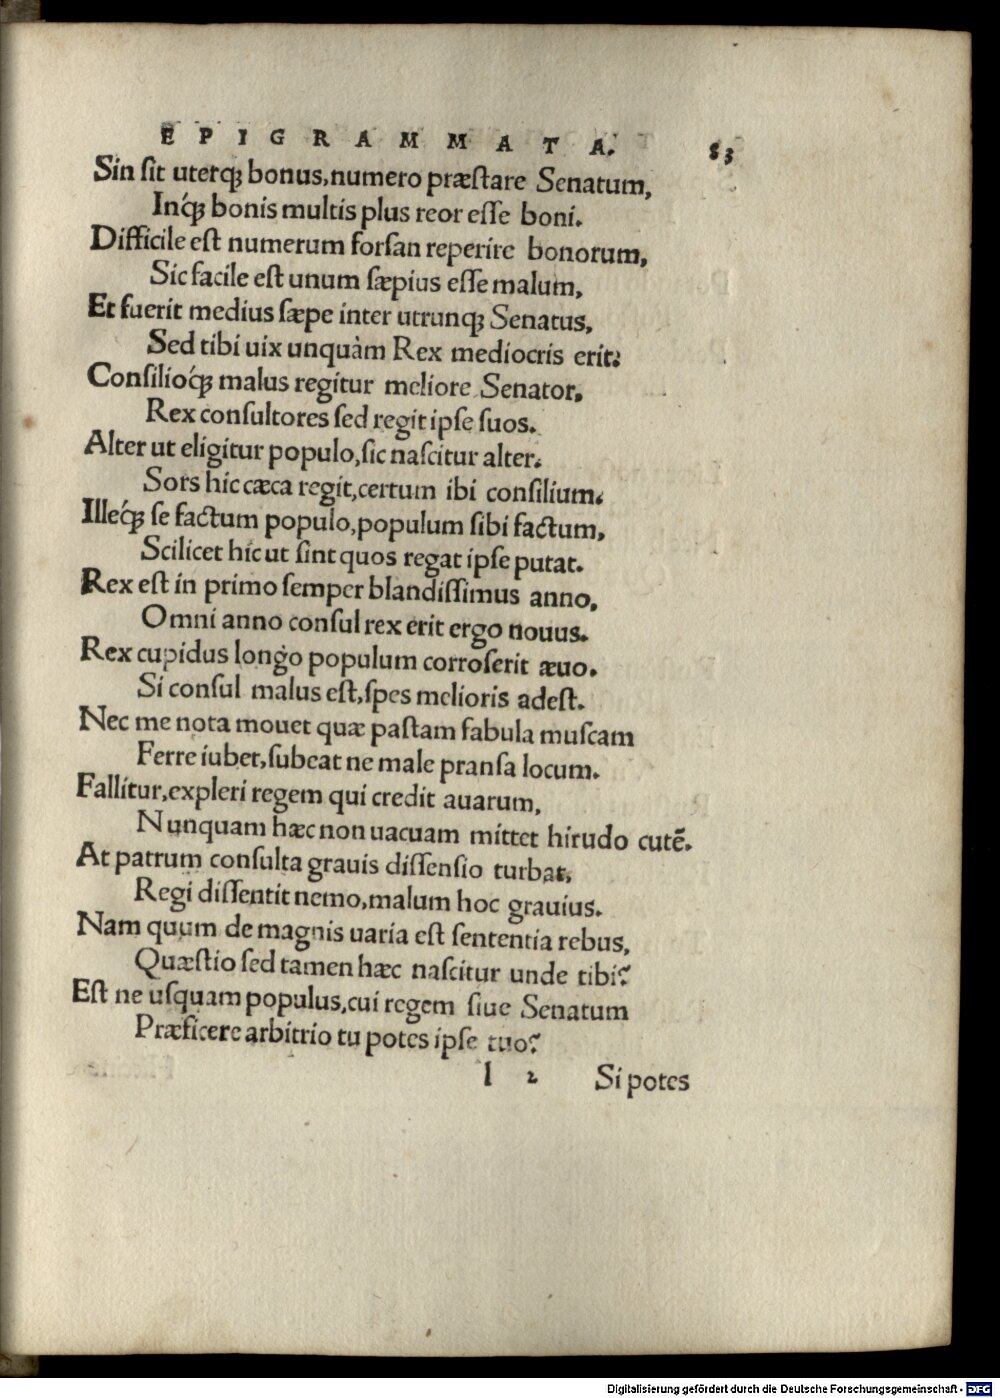 EPIGRAMMATA. 83
Sin ſit uterq́ꝫ bonus, numero præſtare Senatum,
Inq́ꝫ bonis multis plus reor eſſe boni.
Difficile eſt numerum forſan reperire bonorum,
Sic facile eſt unum ſæpius eſſe malum,
Et fuerit medius ſæpe inter utrunqꝫ Senatus,
Sed tibi uix unquàm Rex mediocris erit:
Conſilioq́ꝫ malus regitur meliore Senator,
Rex conſultores ſed regit ipſe ſuos.
Alter ut eligitur populo, ſic naſcitur alter:
Sors hic cæca regit, certum ibi conſilium.
Illeq́ꝫ ſe factum populo, populum ſibi factum,
Scilicet hic ut ſint quos regat ipſe putat.
Rex eſt in primo ſemper blandiſſimus anno,
Omni anno conſul rex erit ergo nouus.
Rex cupidus longo populum corroſerit æuo.
Si conſul malus eſt, ſpes melioris adeſt.
Nec me nota mouet quæ paſtam fabula muſcam
Ferre iubet, ſubeat ne male pranſa locum.
Fallitur, expleri regem qui credit auarum,
Nunquam hæc non uacuam mittet hirudo cutẽ.
At patrum conſulta grauis diſſenſio turbat,
Regi diſſentit nemo, malum hoc grauius.
Nam quum de magnis uaria eſt ſententia rebus,
Quæſtio ſed tamen hæc naſcitur unde tibi?
Eſt ne uſquam populus, cui regem ſiue Senatum
Præficere arbitrio tu potes ipſe tuo?
l 2 Si potes
Digitalisierung gefördert durch die Deutsche Forschungsgemeinschaft - DFG